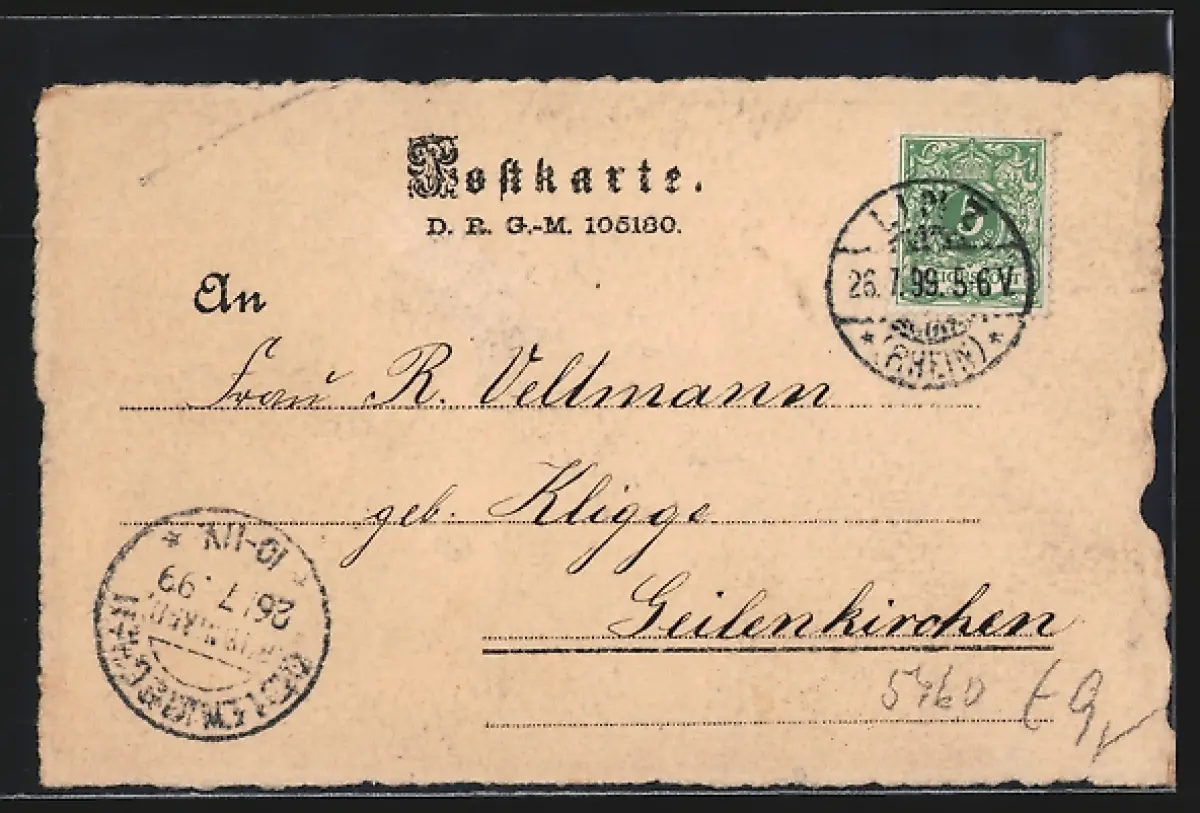 Postkarte.
D. R. G.-M. 105180.
An
Frau R. Veltmann
geb. Kligge
Geilenkirchen
5
LINZ
26.7.99. 5-6 V.
* (RHEIN) *
10-11V.
26/7.99
5460